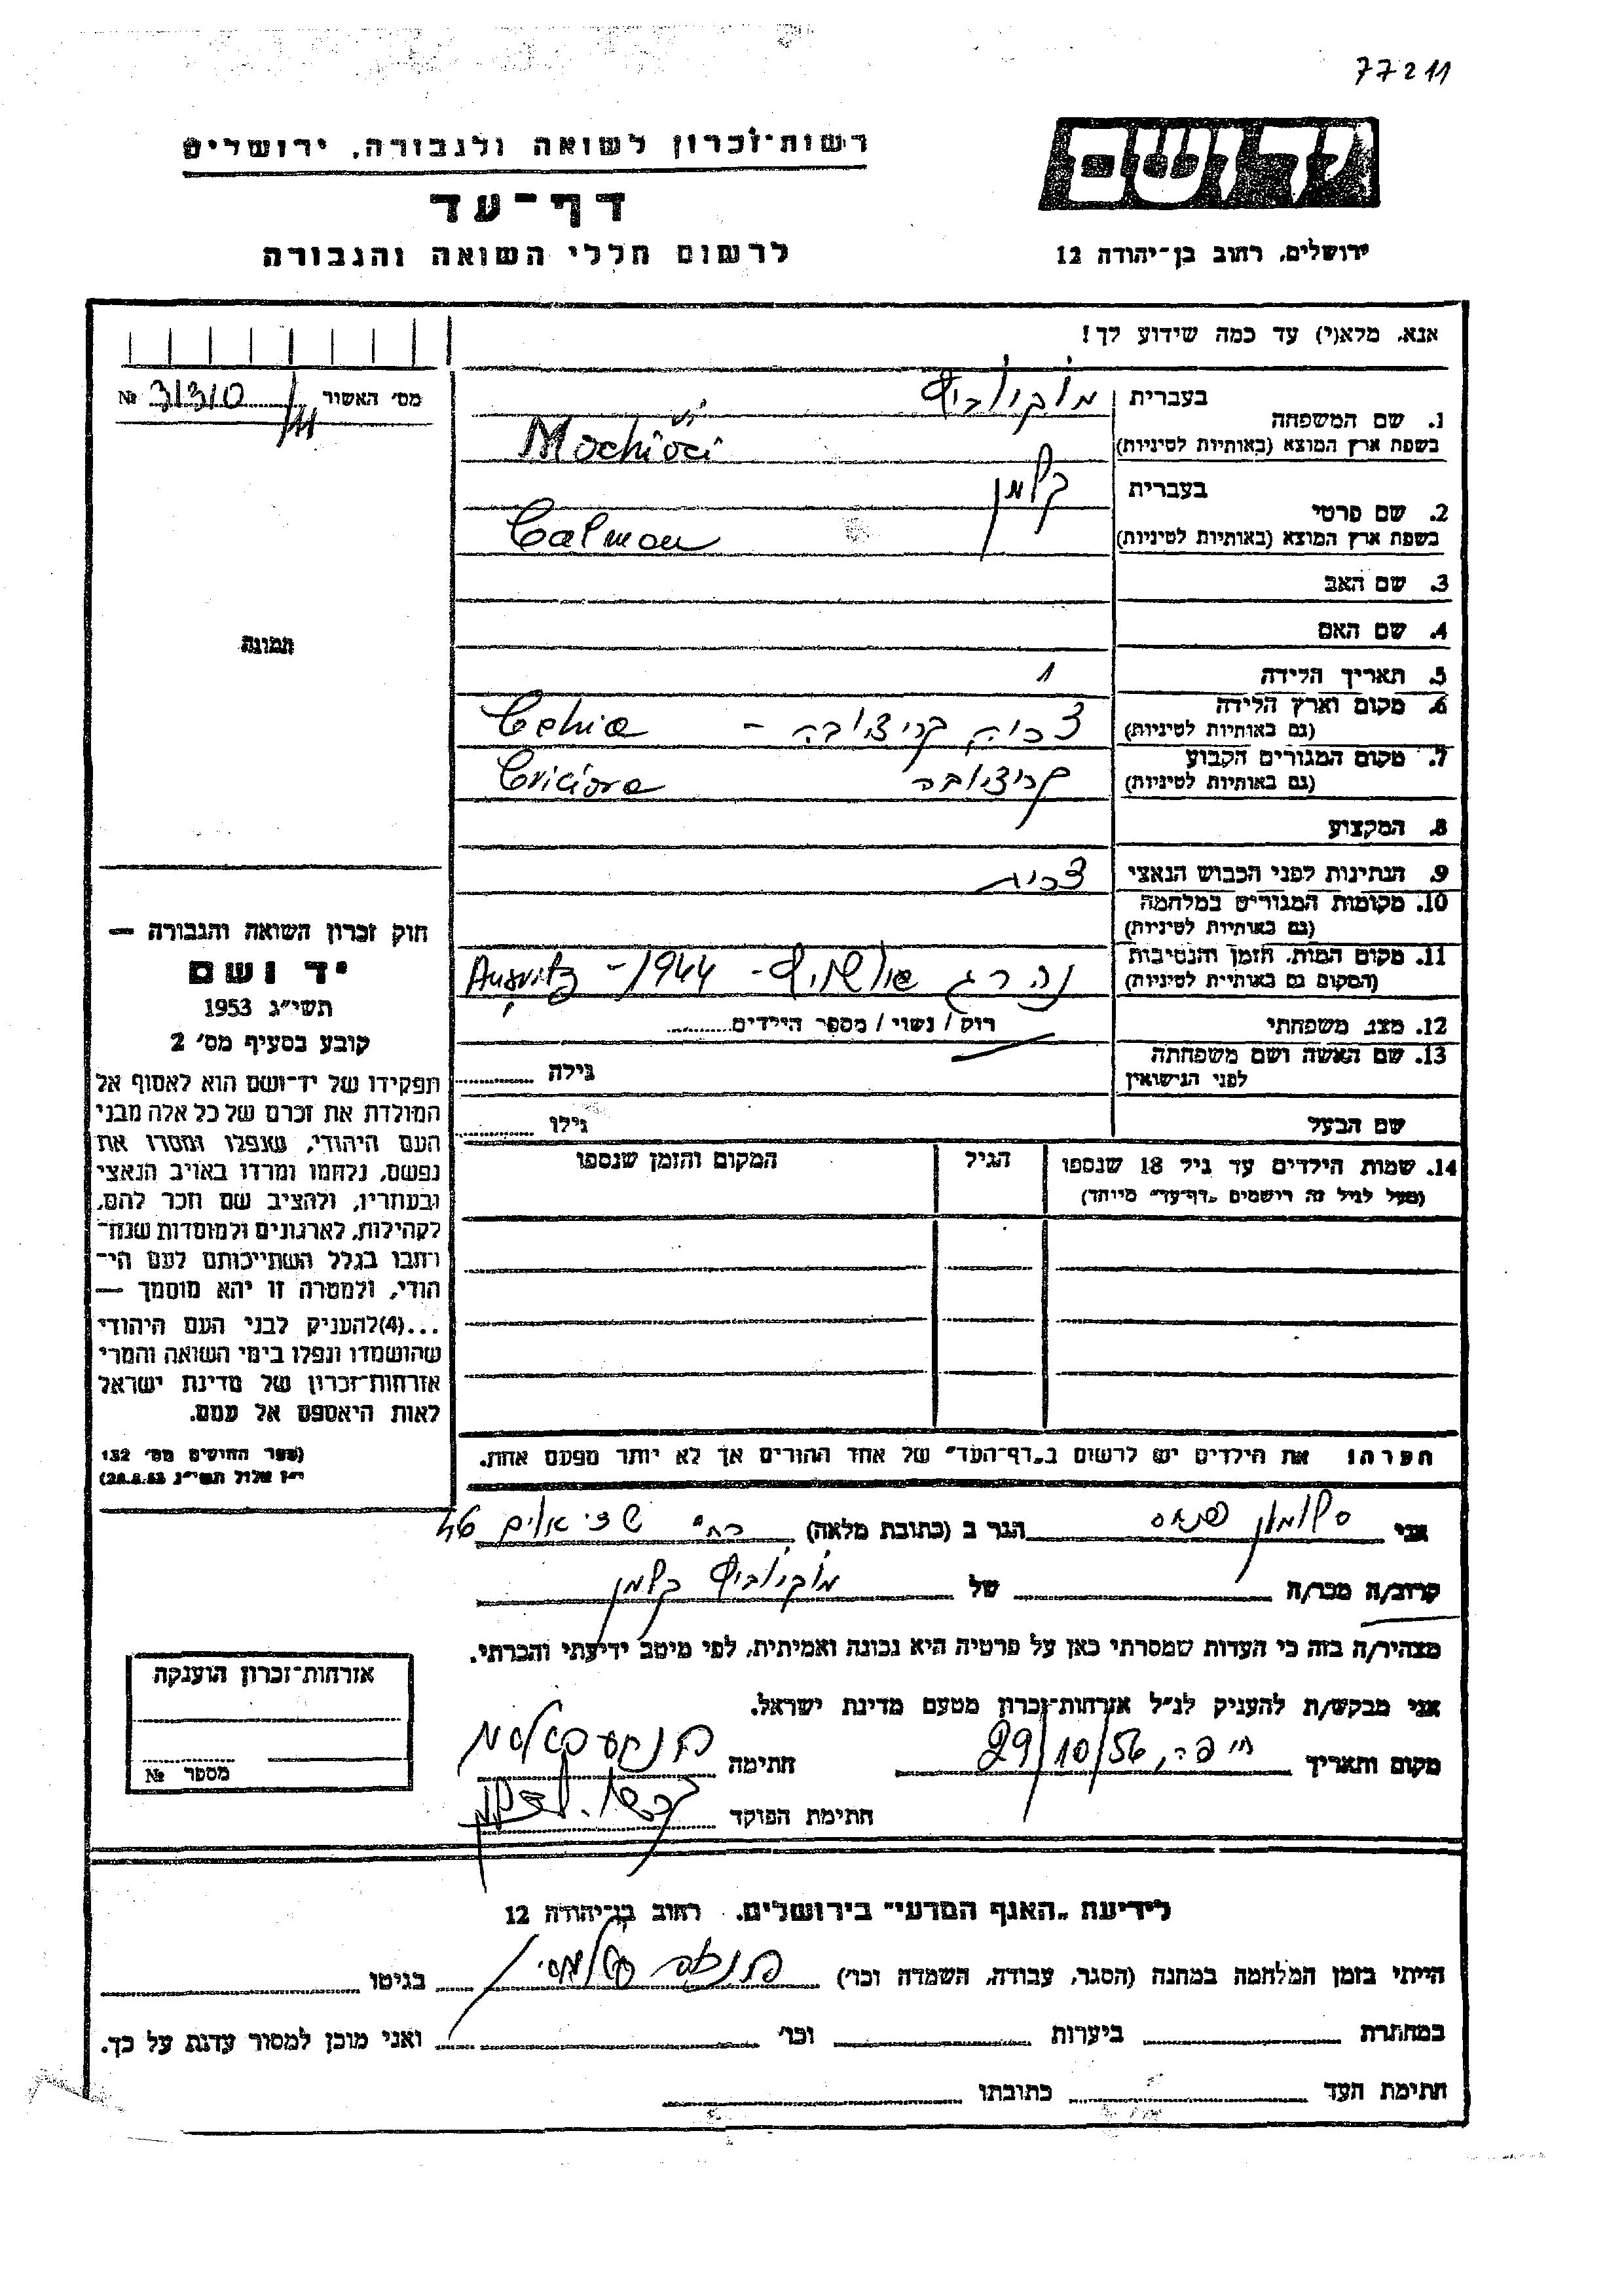 77211
רשות־זכרון לשואה ולגבורה, ירושלים
דף־עד
לרשום חללי השואה והגבורה
יד ושם
ירושלים, רחוב בן־יהודה 12
אנא, מלא(י) עד כמה שידוע לך!
מס׳ האשור № 31310
1. שם המשפחה
בעברית
בשפת ארץ המוצא (באותיות לטיניות)
Mochioci
2. שם פרטי
בעברית קלמן
בשפת ארץ המוצא (באותיות לטיניות) Calmon
3. שם האב
4. שם האם
5. תאריך הלידה
6. מקום וארץ הלידה
(גם באותיות לטיניות)
צכיה קריצובה - Cehia
7. מקום המגורים הקבוע
(גם באותיות לטיניות)
קריצובה Criciova
8. המקצוע
9. הנתינות לפני הכבוש הנאצי צכית
10. מקומות המגורים במלחמה
(גם באותיות לטיניות)
11. מקום המות, הזמן והנסיבות
(המקום גם באותיות לטיניות)
נהרג אושויץ - 1944 - Ausvitz
12. מצב משפחתי רוק / נשוי / מספר הילדים
13. שם האשה ושם משפחתה
לפני הנישואין
גילה
שם הבעל גילו
14. שמות הילדים עד גיל 18 שנספו
(מעל לגיל זה רושמים „דף־עד” מיוחד)
הגיל
המקום והזמן שנספו
תמונה
חוק זכרון השואה והגבורה —
יד ושם
תשי״ג 1953
קובע בסעיף מס׳ 2
תפקידו של יד־ושם הוא לאסוף אל
המולדת את זכרם של כל אלה מבני
העם היהודי, שנפלו ומסרו את
נפשם, נלחמו ומרדו באויב הנאצי
ובעוזריו, ולהציב שם וזכר להם,
לקהילות, לארגונים ולמוסדות שנח־
רבו בגלל השתייכותם לעם הי־
הודי, ולמטרה זו יהא מוסמך —
...(4)להעניק לבני העם היהודי
שהושמדו ונפלו בימי השואה והמרי
אזרחות־זכרון של מדינת ישראל
לאות היאספם אל עמם.
(ספר החוקים מס׳ 132
י״ז אלול תשי״ג 28.8.53)
הערה: את הילדים יש לרשום ב„דף־העד” של אחד ההורים אך לא יותר מפעם אחת.
אני סלומון פנחס הגר ב (כתובת מלאה)
קרוב/ה מכר/ה של קלמן
מצהיר/ה בזה כי העדות שמסרתי כאן על פרטיה היא נכונה ואמיתית, לפי מיטב ידיעתי והכרתי.
אני מבקש/ת להעניק לנ״ל אזרחות־זכרון מטעם מדינת ישראל.
מקום ותאריך חיפה, 29/10/56 חתימה
חתימת הפוקד
אזרחות־זכרון הוענקה
מספר №
לידיעת „האגף המדעי” בירושלים, רחוב בן־יהודה 12
הייתי בזמן המלחמה במחנה (הסגר, עבודה, השמדה וכו׳) בגיטו
במחתרת ביערות וכו׳ ואני מוכן למסור עדות על כך.
חתימת העד כתובתו